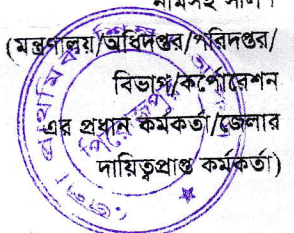 নামসহ সীল ।
(মন্ত্রণালয়/অধিদপ্তর/পরিদপ্তর/
বিভাগ/কর্পোরেশন
এর প্রধান কর্মকর্তা/জেলার
দায়িত্বপ্রাপ্ত কর্মকর্তা)
প্রাথমিক শিক্ষা
জেলা
পিরোজপুর